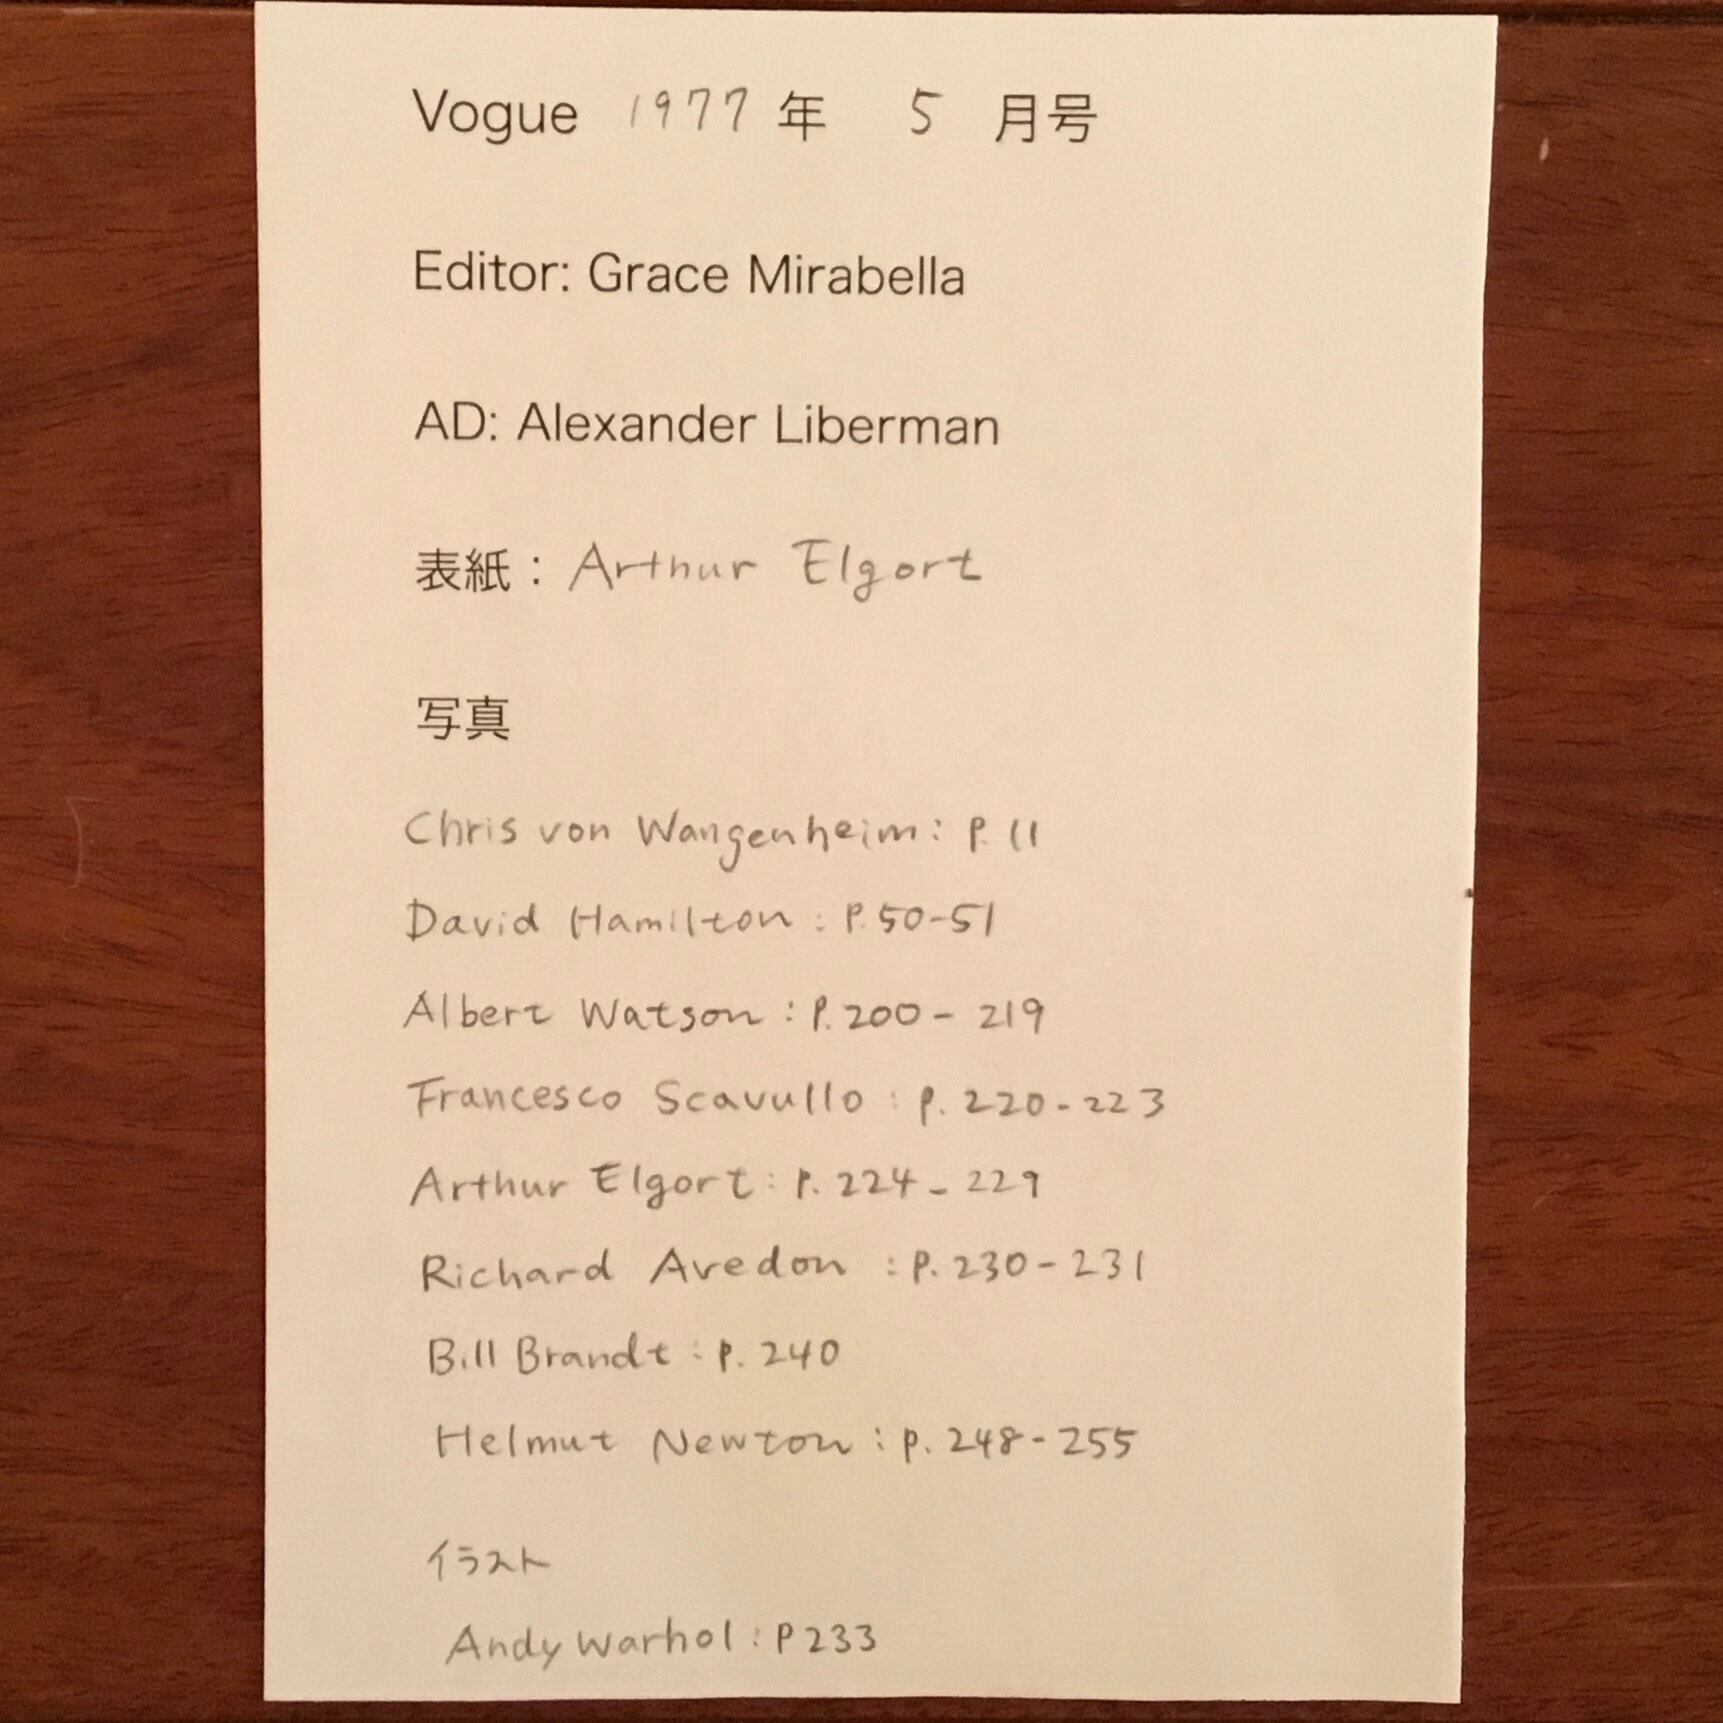 Vogue 1977 年 5 月号
Editor: Grace Mirabella
AD: Alexander Liberman
表紙：Arthur Elgort
写真
Chris von Wangenheim: P. 11
David Hamilton: P. 50-51
Albert Watson: P. 200-219
Francesco Scavullo: p. 220-223
Arthur Elgort: P. 224-229
Richard Avedon: P. 230-231
Bill Brandt: p. 240
Helmut Newton: p. 248-255
イラスト
Andy Warhol: P 233